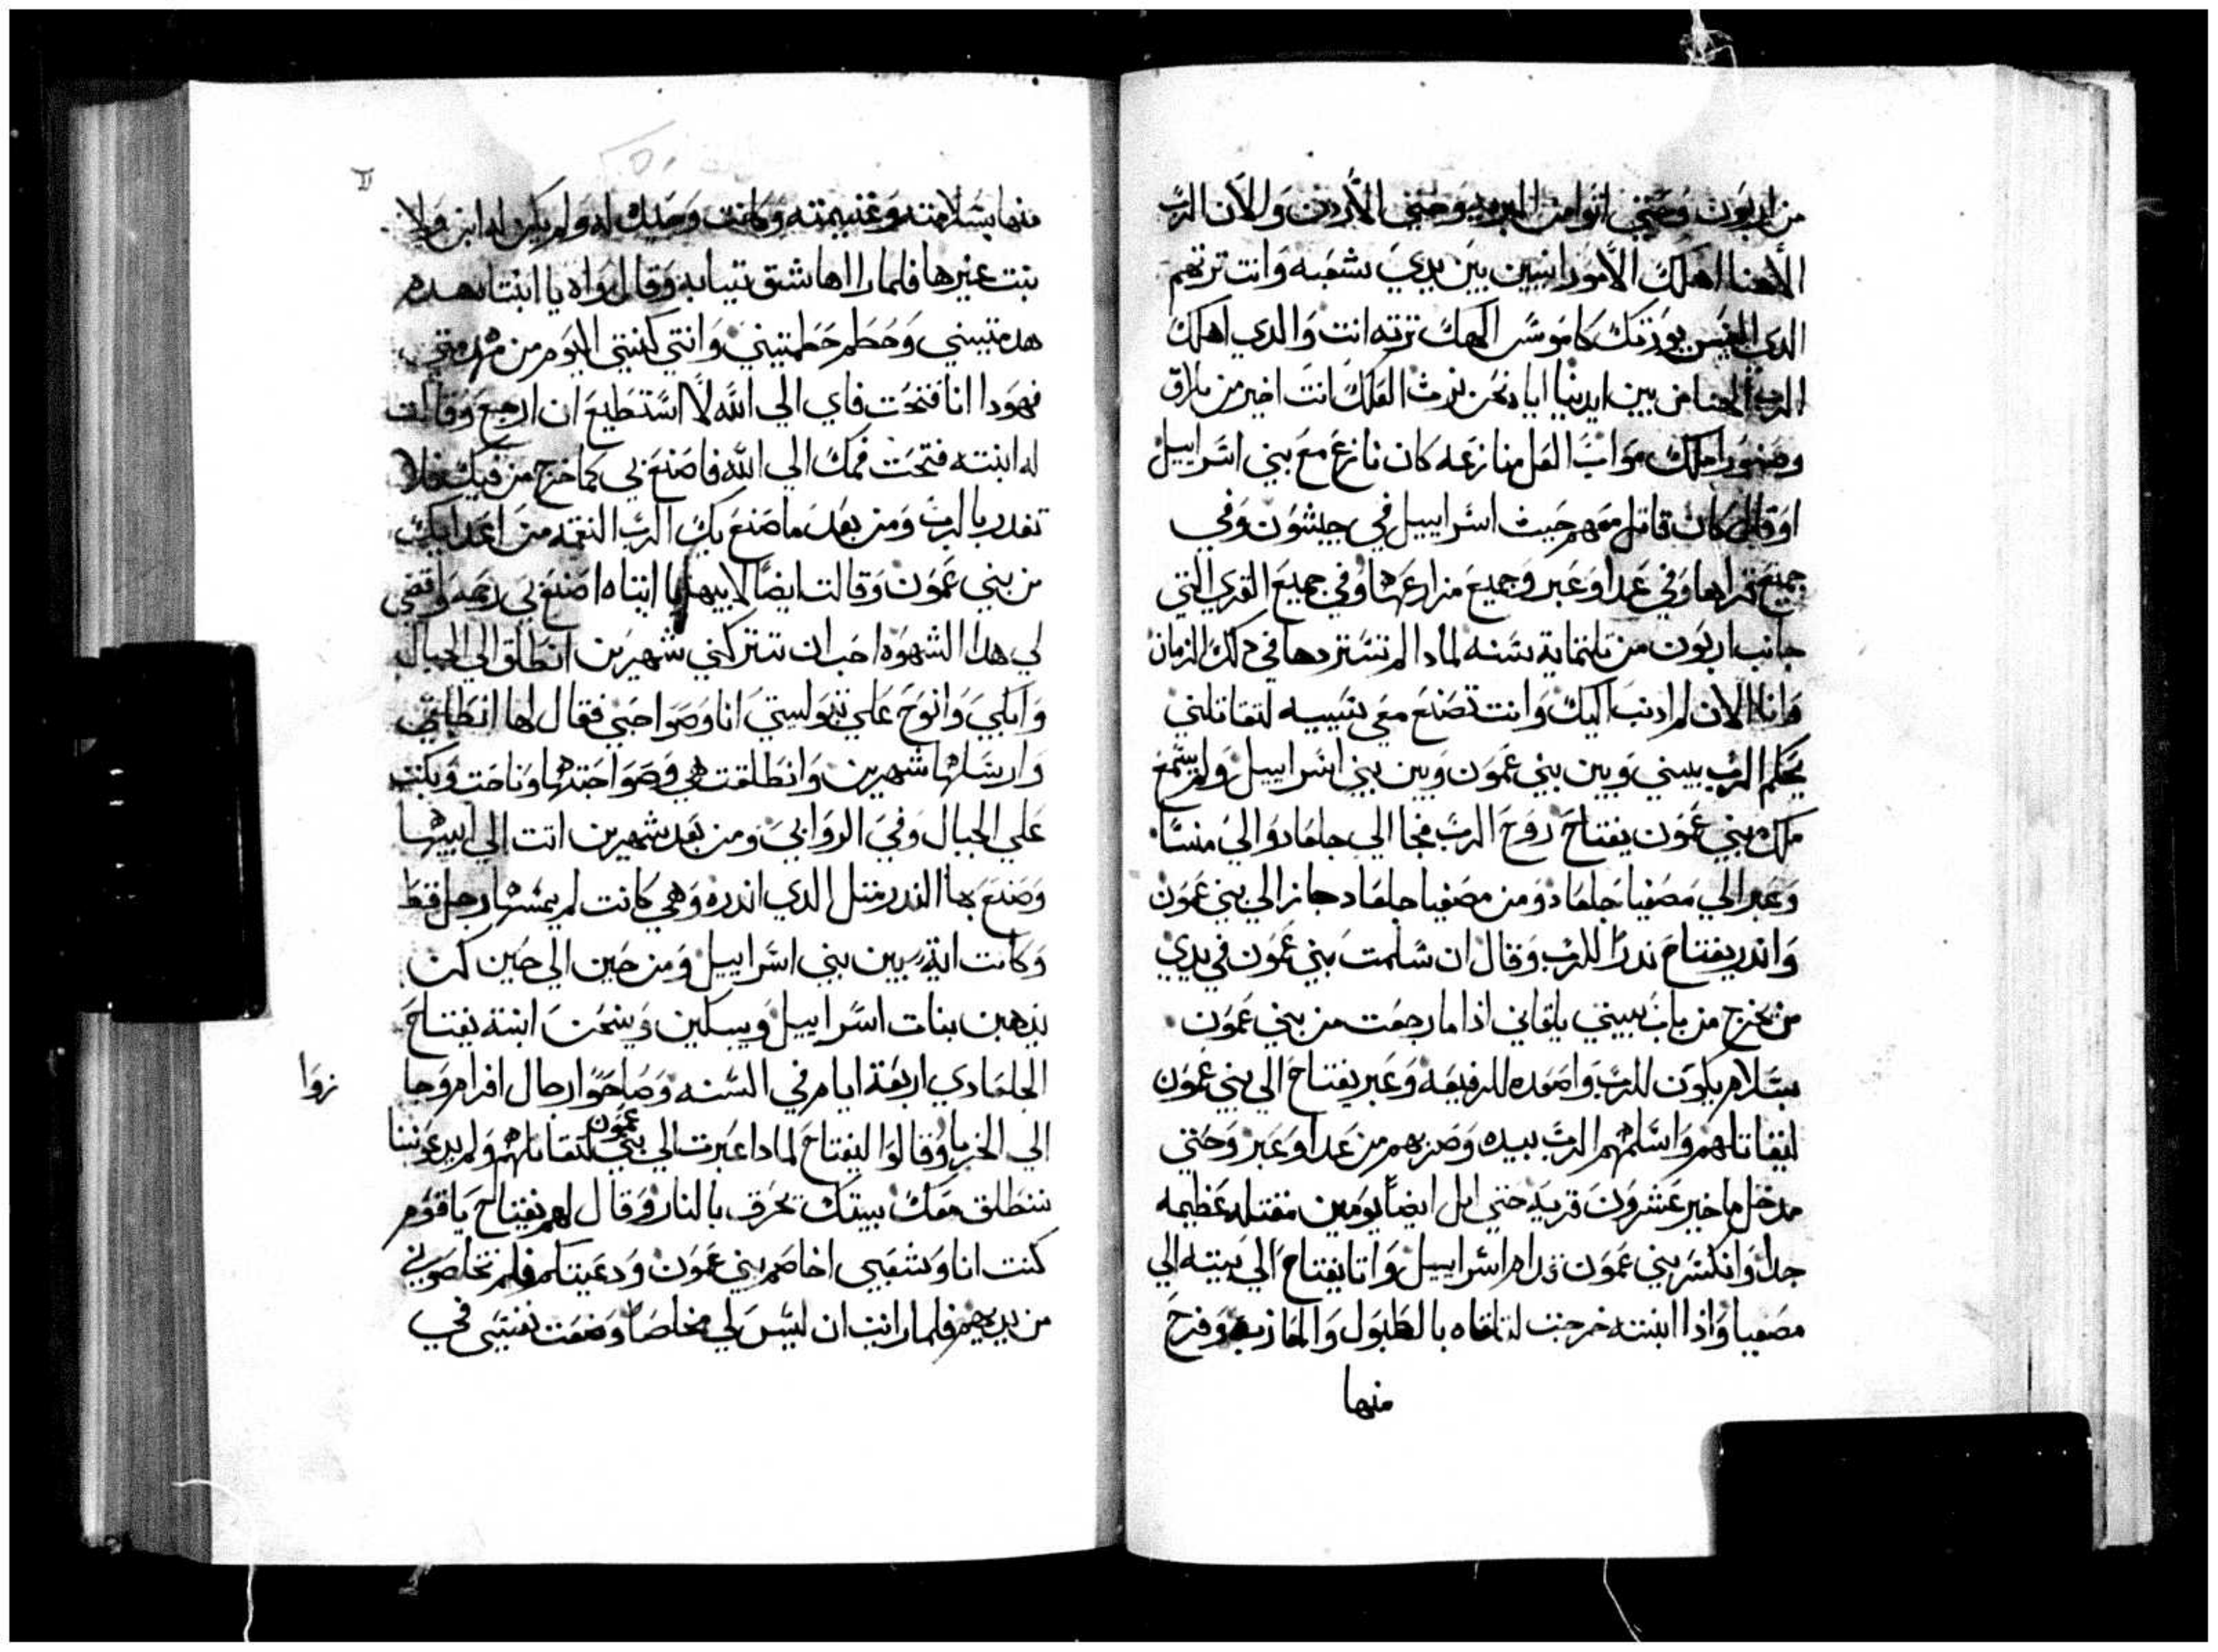 من اربون وحتي اتوا من البريه وحتي الأردن والآن الرب
الاهنا اهلك الامورانيين بين يدي شعبه وانت ترتهم
الدي يورتك كاموش الهك ترته انت والدي اهلك
الرب الهنا من بين ايدينا اياه نحن نرث العلك انت اخير من بالاق
وصفور ملك مواب العل منازعه كان نازع مع بني اسراييل
او قتال كان قاتل معهم حيث اسراييل في حيشون وفي
جميع قراها وفي عدا وعبر وجميع مزارعها وفي جميع القري التي
جانب اربون من تلتماية سنه لمادا لم تستردها في دلك الزمان
وانا الان لم ادنب اليك وانت تصنع معي سيييه لتقاتلني
يحكم الرب بيني وبين بني عمون وبين بني اسراييل ولم يسمع
ملك بني عمون يفتاح روح الرب فجا الي جلعاد والي منسا
وعبر الي مصفيا جلعاد ومن مصفيا جلعاد جاز الي بني عمون
واندر يفتاح ندرا للرب وقال ان سلمت بني عمون في يدي
من يخرج من باب بييتي يلقاني اذا ما رجعت من بني عمون
بسلام يكون للرب واصعده للرفيعه وعبر يفتاح الي بني عمون
ليقاتلهم واسلمهم الرب بيده وضربهم من عدا وعبر وحتي
مدخل ما خير عشرون قريه حتي ابل ايضا يومين مقتله عظيمه
جدا وانكسر بني عمون قدام اسراييل واتا يفتاح الي بيته الي
مصفيا واذا ابنته خرجت لتلقاه بالطبول والمعازف وفرح
منها
منها بسلامته وغنيمته وكانت وحيدك له ولم يكن له ابن ولا
بنت غيرها فلما راا ها شق تيابه وقال اواه يا ابنتا هدم
هدمتيني وحطم حطمتيني وانتي كنتي اليوم من
فهودا انا فتحت فاي الي الله لا استطيع ان ارجع وقالت
له ابنته فتحت فمك الي الله فاصنع بي كما خرج من فيك فلا
تغدر بالرب ومن بعد ما صنع بك الرب النقمه من اعداييك
من بني عمون وقالت ايضا لابيها يا ابتاه اصنع بي رحمه واقضي
لي هدا الشهوه احب ان تتركني شهرين انطلق الي الجبال
وابكي وانوح علي بتوليتي انا وصواحبي فقال لها انطلقي
وارسلها شهرين وانطلقت هي وصواحبتها وناحت وبكت
علي الجبال وفي الروابي ومن بعد شهرين اتت الي ابيها
وصنع بها الندر متل الدي اندره وهي كانت لم يمسها رجل قط
وكانت ايه بين بني اسراييل ومن حين الي حين كن
يدهبن بنات اسراييل ويبكين وينحن ابنة يفتاح
الجلعادي اربعة ايام في السنه وصاحوا رجال افرام وجا
زوا
الي الخربا وقالوا ليفتاح لمادا عبرت الي بني عمون لتقاتلهم ولم يدعوننا
ننطلق معك بيتك نحرق بالنار وقال لهم يفتاح يا قوم
كنت انا وشعبي اخاصم بني عمون ودعيتكم فلم تخلصوني
من يديهم فلما رايت ان ليس لي مخلصا وضعت نفسي في